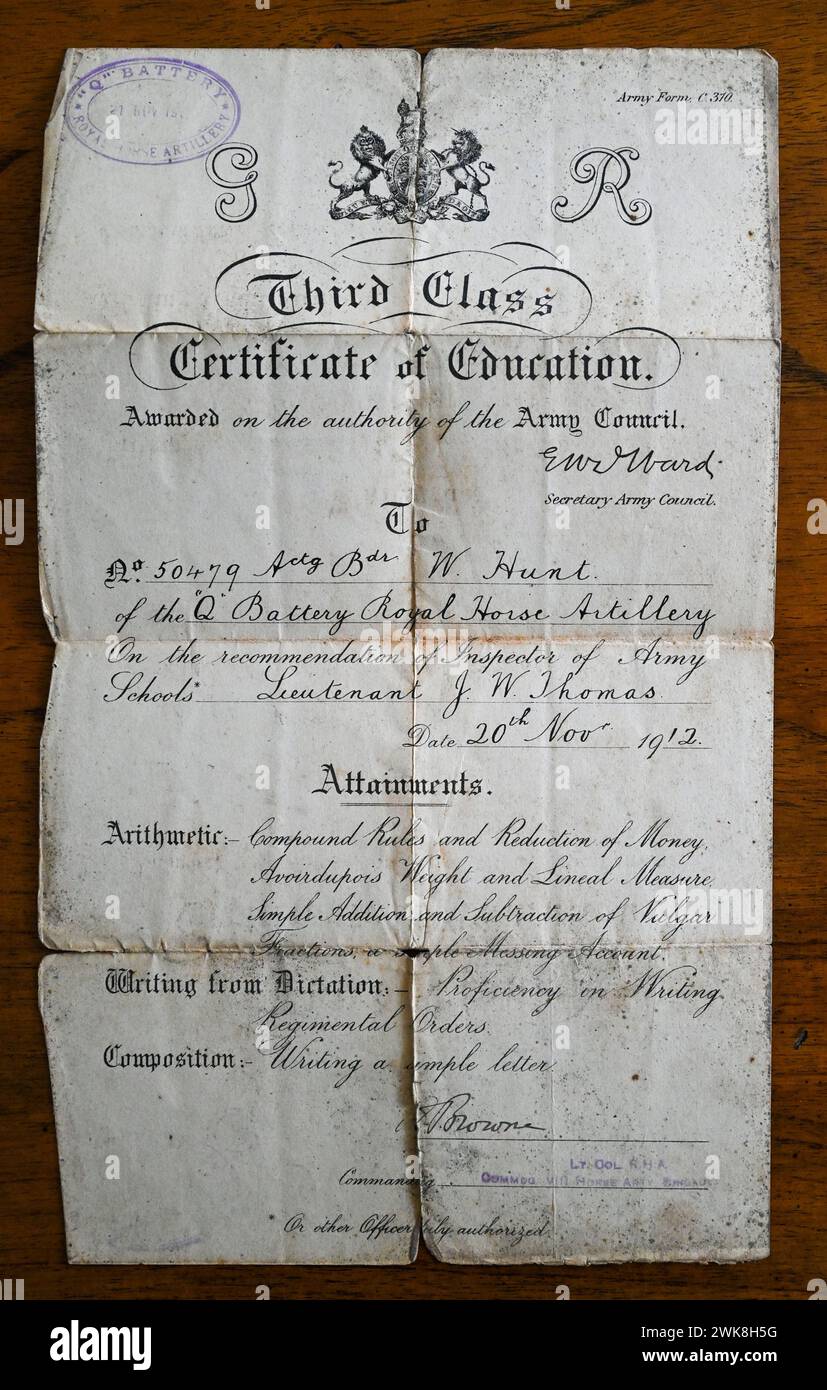 "Q" BATTERY
ROYAL HORSE ARTILLERY
Army Form, C. 370.
G R
Third Class
Certificate of Education.
Awarded on the authority of the Army Council.
E W D Ward.
Secretary Army Council.
To
No. 50479 Actg Bdr W. Hunt.
of the "Q" Battery Royal Horse Artillery
On the recommendation of Inspector of Army
Schools* Lieutenant J. W. Thomas.
Date 20th Novr 1912.
Attainments.
Arithmetic:- Compound Rules and Reduction of Money,
Avoirdupois Weight and Lineal Measure,
Simple Addition and Subtraction of Vulgar
Fractions, a simple Messing Account.
Writing from Dictation:- Proficiency in Writing
Regimental Orders.
Composition:- Writing a simple letter.
Browne
LT. COL. R.H.A.
Commanding COMMDG VIII HORSE ARTY BRIGADE
Or other Officer duly authorized.
alamy
Image ID: 2WK8H5G
www.alamy.com